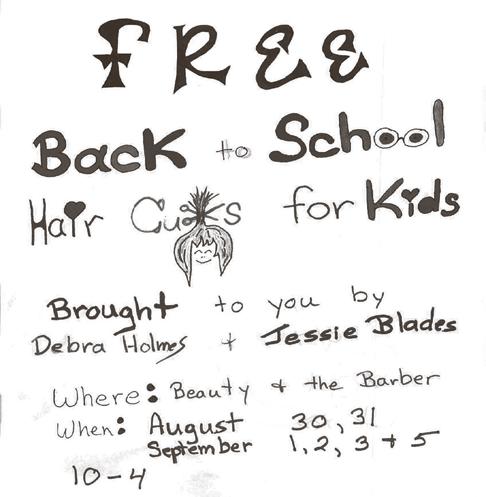 FREE
Back to School
Hair Cuts for Kids
Brought to you by
Debra Holmes + Jessie Blades
Where: Beauty + the Barber
When: August 30, 31
September 1, 2, 3 + 5
10-4